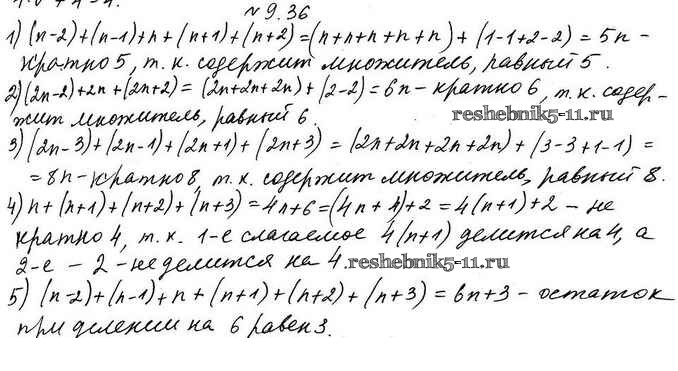 № 9.36
1) (n-2)+(n-1)+n+(n+1)+(n+2)=(n+n+n+n+n)+(1-1+2-2)=5n-
кратно 5, т.к. содержит множитель, равный 5.
2) (2n-2)+2n+(2n+2)=(2n+2n+2n)+(2-2)=6n-кратно 6, т.к. содер-
жит множитель, равный 6.
reshebnik5-11.ru
3) (2n-3)+(2n-1)+(2n+1)+(2n+3)=(2n+2n+2n+2n)+(3-3+1-1)=
=8n-кратно 8, т.к. содержит множитель, равный 8.
4) n+(n+1)+(n+2)+(n+3)=4n+6=(4n+4)+2=4(n+1)+2-не
кратно 4, т.к. 1-е слагаемое 4(n+1) делится на 4, а
2-е - 2 - не делится на 4.
reshebnik5-11.ru
5) (n-2)+(n-1)+n+(n+1)+(n+2)+(n+3)=6n+3-остаток
при делении на 6 равен 3.